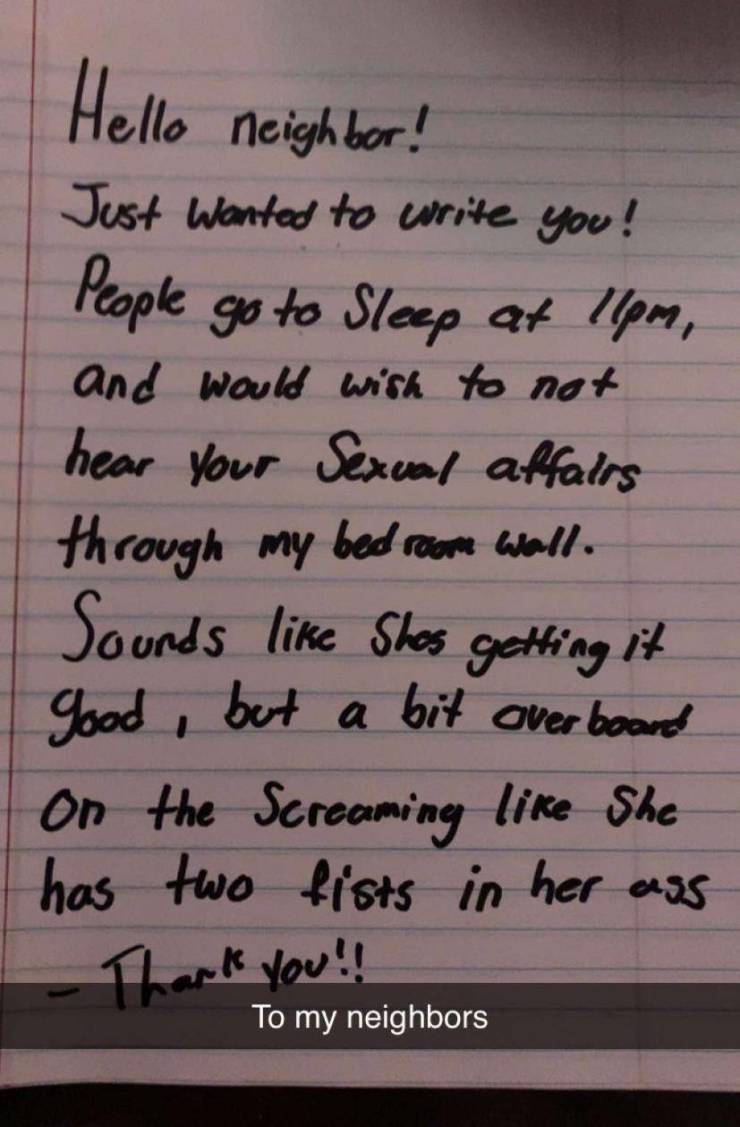 Hello neighbor!
Just wanted to write you!
People go to Sleep at 11pm,
and would wish to not
hear your Sexual affairs
through my bedroom wall.
Sounds like Shes getting it
good, but a bit overboard
on the Screaming like She
has two fists in her ass
- Thank you!!
To my neighbors